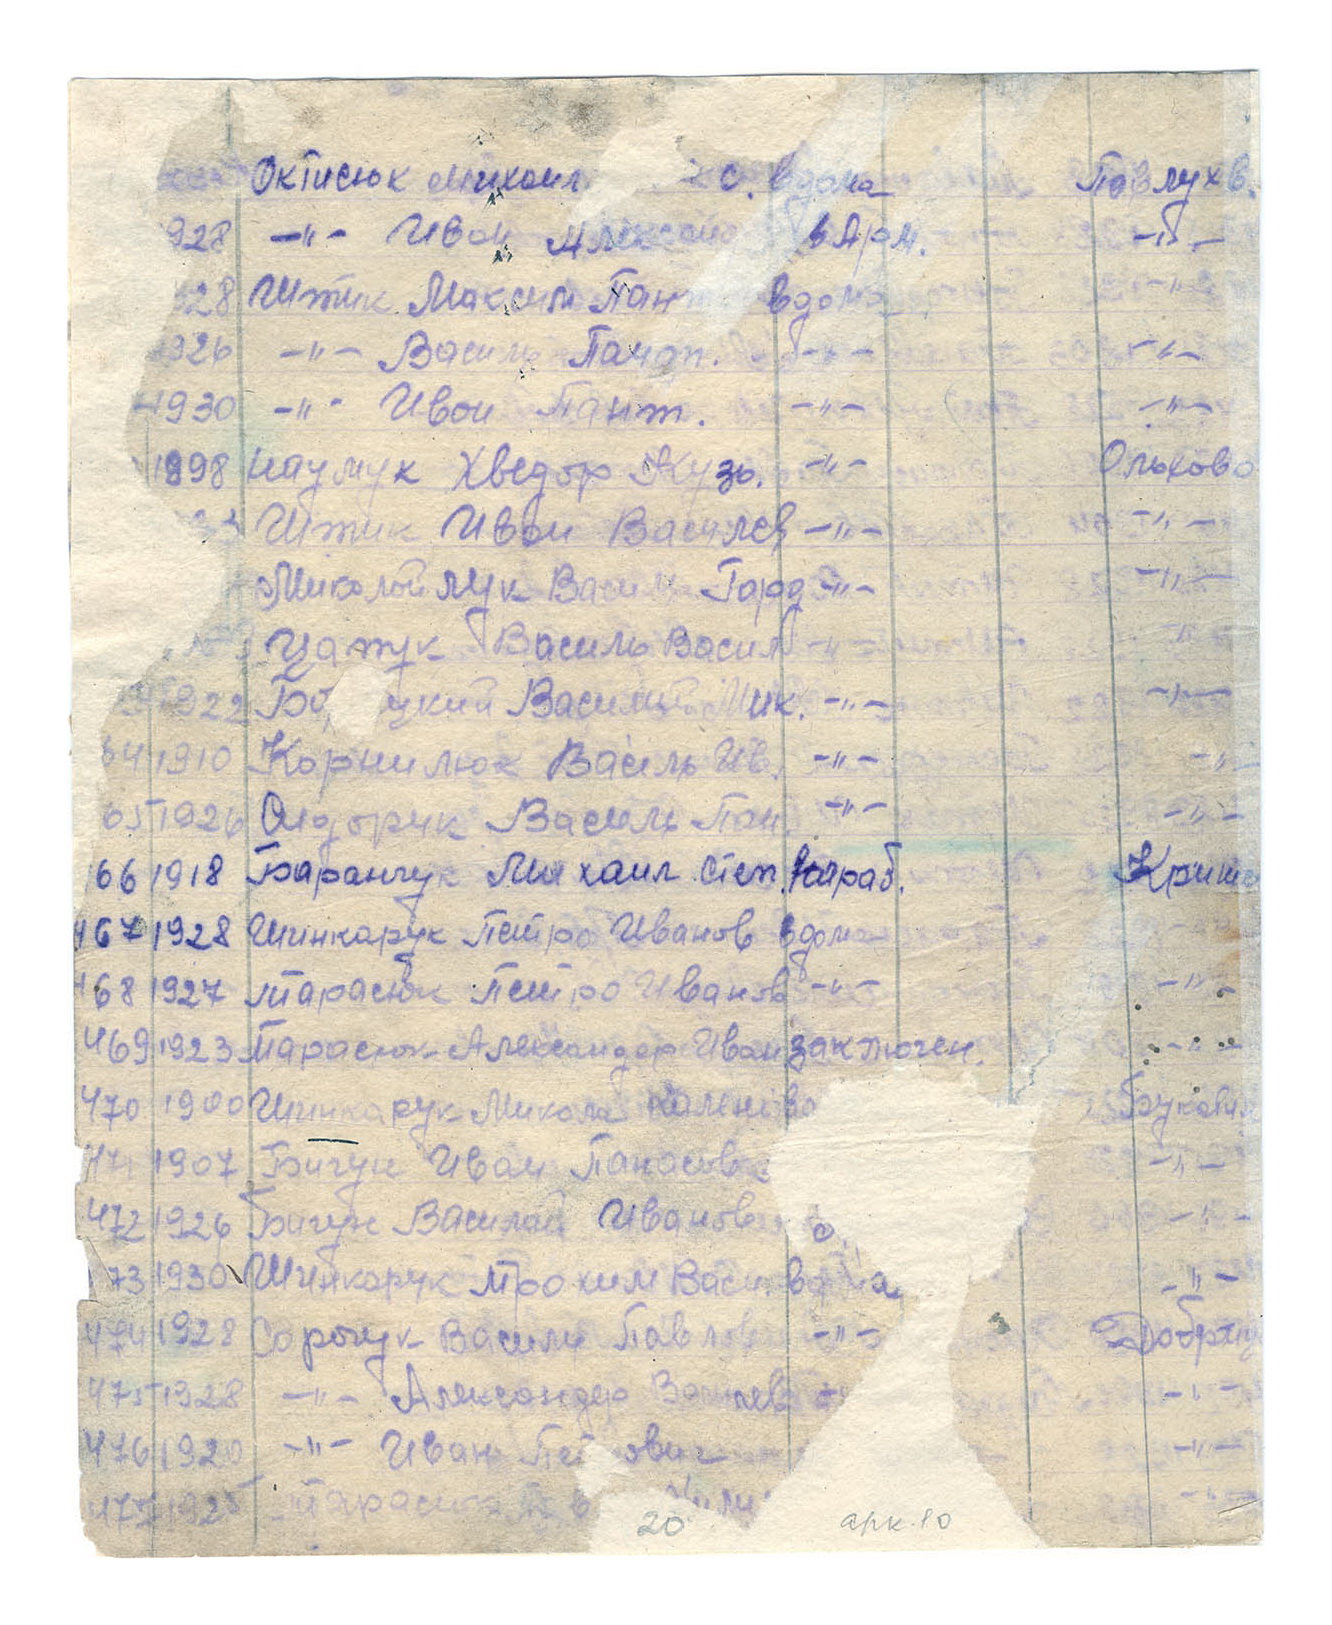 Октисюк Михаил с. вдома Павлухв.
928 -"- Иван Александ в Арм. -"-
28 Штик Максим Пант вдома
926 -"- Василь Пандп. -"- -"-
1930 -"- Иван Пант. -"- -"-
1898 Наумук Хведор Кузь. -"- Ольхово
Штик Иван Василев -"- -"-
Миколойчук Василь Горд -"- -"-
Василь Васил -"- -"-
1922 Василий Мик. -"- -"-
64 1910 Корнилюк Василь Ив. -"- -"-
65 1926 Сидорук Василь Пан. -"- -"-
166 1918 Баранчук Михаил Степ. Криш
467 1928 Шинкарук Петро Иванов вдома
468 1927 Тарасюк Петро Иванов -"- -"-
469 1923 Тарасюк Александер Иван заключен. -"-
470 1900 Шинкарук Микола Каленi
471 1907 Бигун Иван Панасов -"-
472 1926 Бигун Василий Иванов -"-
73 1930 Шинкарук Трохим Васи. вдома -"-
474 1928 Сорочук Василь Павлов -"- Добрян
475 1928 -"- Александер Василев -"-
476 1920 -"- Иван Пе ович -"-
477 1925 Тарасюк -"-
20 арк. 10